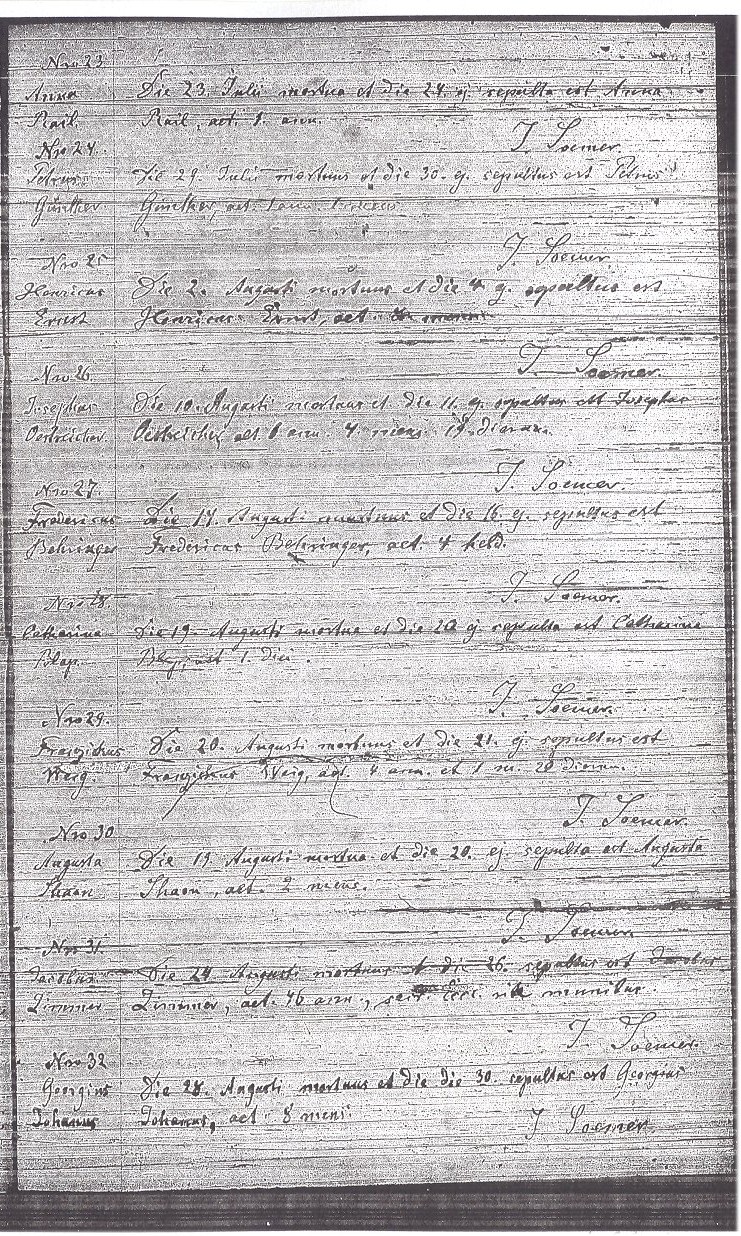 Nro 23
Anna Die 23. Julii mortua et die 24. ej. sepulta est Anna
Rail. Rail, aet. 1. ann.
J. Soemer.
Nro 24.
Petrus Die 29. Julii mortuus et die 30. ej. sepultus est Petrus
Günther Günther, aet. 1 ann.
J. Soemer
Nro 25
Henricus Die 2. Augusti mortuus et die 4 ej. sepultus est
Ernst Henricus Ernst, aet.
J. Soemer.
Nro 26
Josephus Die 10. Augusti mortuus et die 11. ej. sepultus est Josephus
Oestreicher Oestreicher aet. 6 ann. 4 mens. 19. dierum.
J. Soemer.
Nro 27.
Fredericus Die 17. Augusti mortuus et die 18. ej. sepultus est
Behringer Fredericus Behringer, aet. 4 hebd.
J. Soemer.
Nro 28.
Catharina Die 19. Augusti mortua et die 20 ej. sepulta est Catharina
aet 1. diei.
J. Soemer.
Nro 29.
Franziskus Die 20. Augusti mortuus et die 21. ej. sepultus est
Weig. Franziskus Weig, aet. 4 ann. et 1 m. 20 dierum.
J. Soemer.
Nro 30
Augusta Die 19. Augusti mortua et die 20. ej. sepulta est Augusta
Shaon Shaon, aet. 2 mens.
J. Soemer
Nro 31.
Jacobus Die 24. Augusti mortuus et die 26. sepultus est Jacobus
Zimmer Zimmer, aet. 46 ann., rite munitus.
J. Soemer.
Nro 32
Georgius Die 28. Augusti mortuus et die die 30. sepultus est Georgius
Johanus Johanus, aet. 8 mens.
J Soemer.